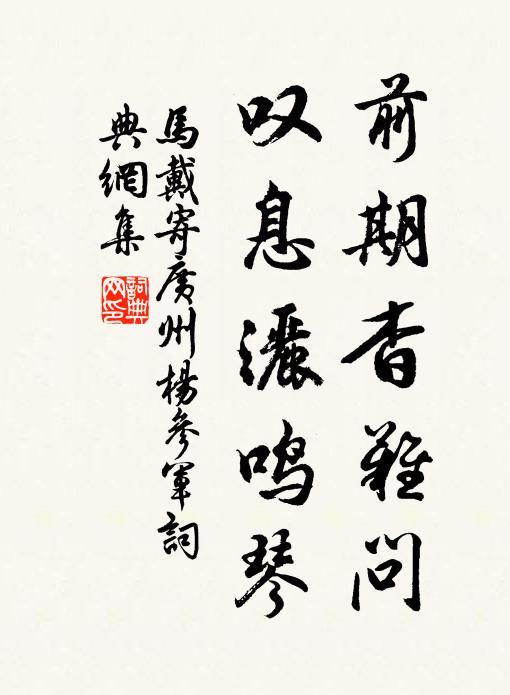 前期杳難问
叹息灑鸣琴
馬戴寄廣州楊參軍詞
典網集
詞典
网印